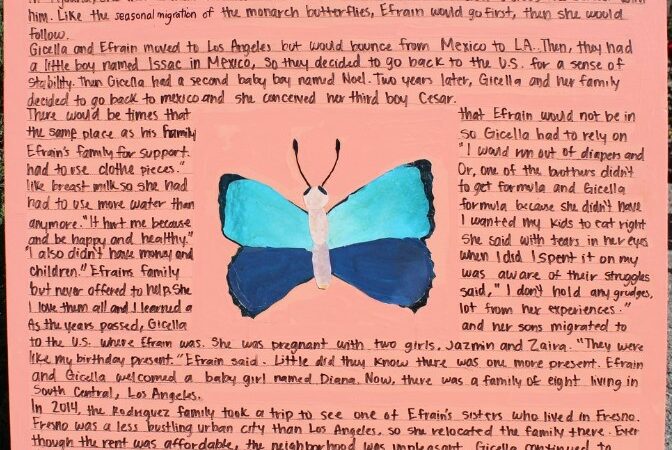 him. Like the seasonal migration of the monarch butterflies, Efrain would go first, then she would
follow.
Gicella and Efrain moved to Los Angeles but would bounce from Mexico to LA. Then, they had
a little boy named Issac in Mexico, so they decided to go back to the U.S. for a sense of
stability. Then Gicella had a second baby boy named Noel. Two years later, Gicella and her family
decided to go back to mexico and she conceived her third boy Cesar.
There would be times that that Efrain would not be in
the same place as his family so Gicella had to rely on
Efrain's family for support. "I would run out of diapers and
had to use clothe pieces." Or, one of the brothers didn't
like breast milk so she had to get formula and Gicella
had to use more water than formula because she didn't have
anymore. "It hurt me because I wanted my kids to eat right
and be happy and healthy." She said with tears in her eyes
"I also didn't have money and when I did I spent it on my
children." Efrains family was aware of their struggles
but never offered to help. She said, "I don't hold any grudges,
I love them all and I learned a lot from her experiences."
As the years passed, Gicella and her sons migrated to
to the U.S. where Efram was. She was pregnant with two girls, Jazmin and Zaira. "They were
like my birthday present." Efrain said. Little did they know there was one more present. Efrain
and Gicella welcomed a baby girl named Diana. Now, there was a family of eight living in
South Central, Los Angeles.
In 2014, the Rodriguez family took a trip to see one of Efrain's sisters who lived in Fresno.
Fresno was a less bustling urban city than Los Angeles, so she relocated the family there. Even
though the rent was affordable, the neighborhood was unpleasant. Gicella continued to